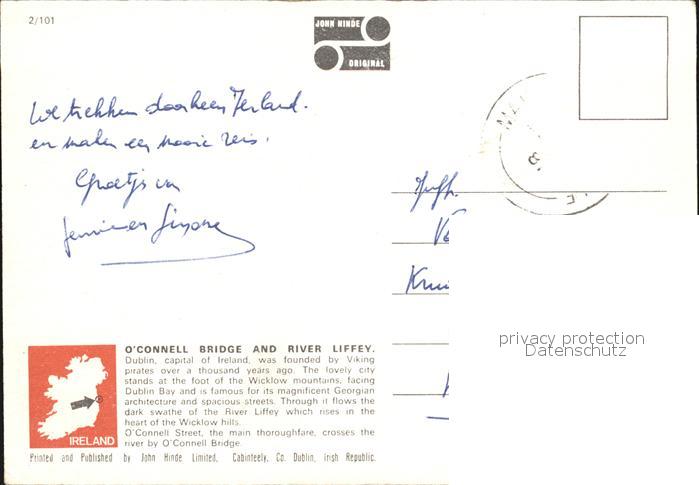 2/101
JOHN HINDE
ORIGINAL
We trekken doorheen Ierland.
en maken een mooie reis.
Groetjes van
en Simone
Juffr.
privacy protection
Datenschutz
IRELAND
O'CONNELL BRIDGE AND RIVER LIFFEY.
Dublin, capital of Ireland, was founded by Viking
pirates over a thousand years ago. The lovely city
stands at the foot of the Wicklow mountains, facing
Dublin Bay and is famous for its magnificent Georgian
architecture and spacious streets. Through it flows the
dark swathe of the River Liffey which rises in the
heart of the Wicklow hills.
O'Connell Street, the main thoroughfare, crosses the
river by O'Connell Bridge.
Printed and Published by John Hinde Limited, Cabinteely, Co. Dublin, Irish Republic.